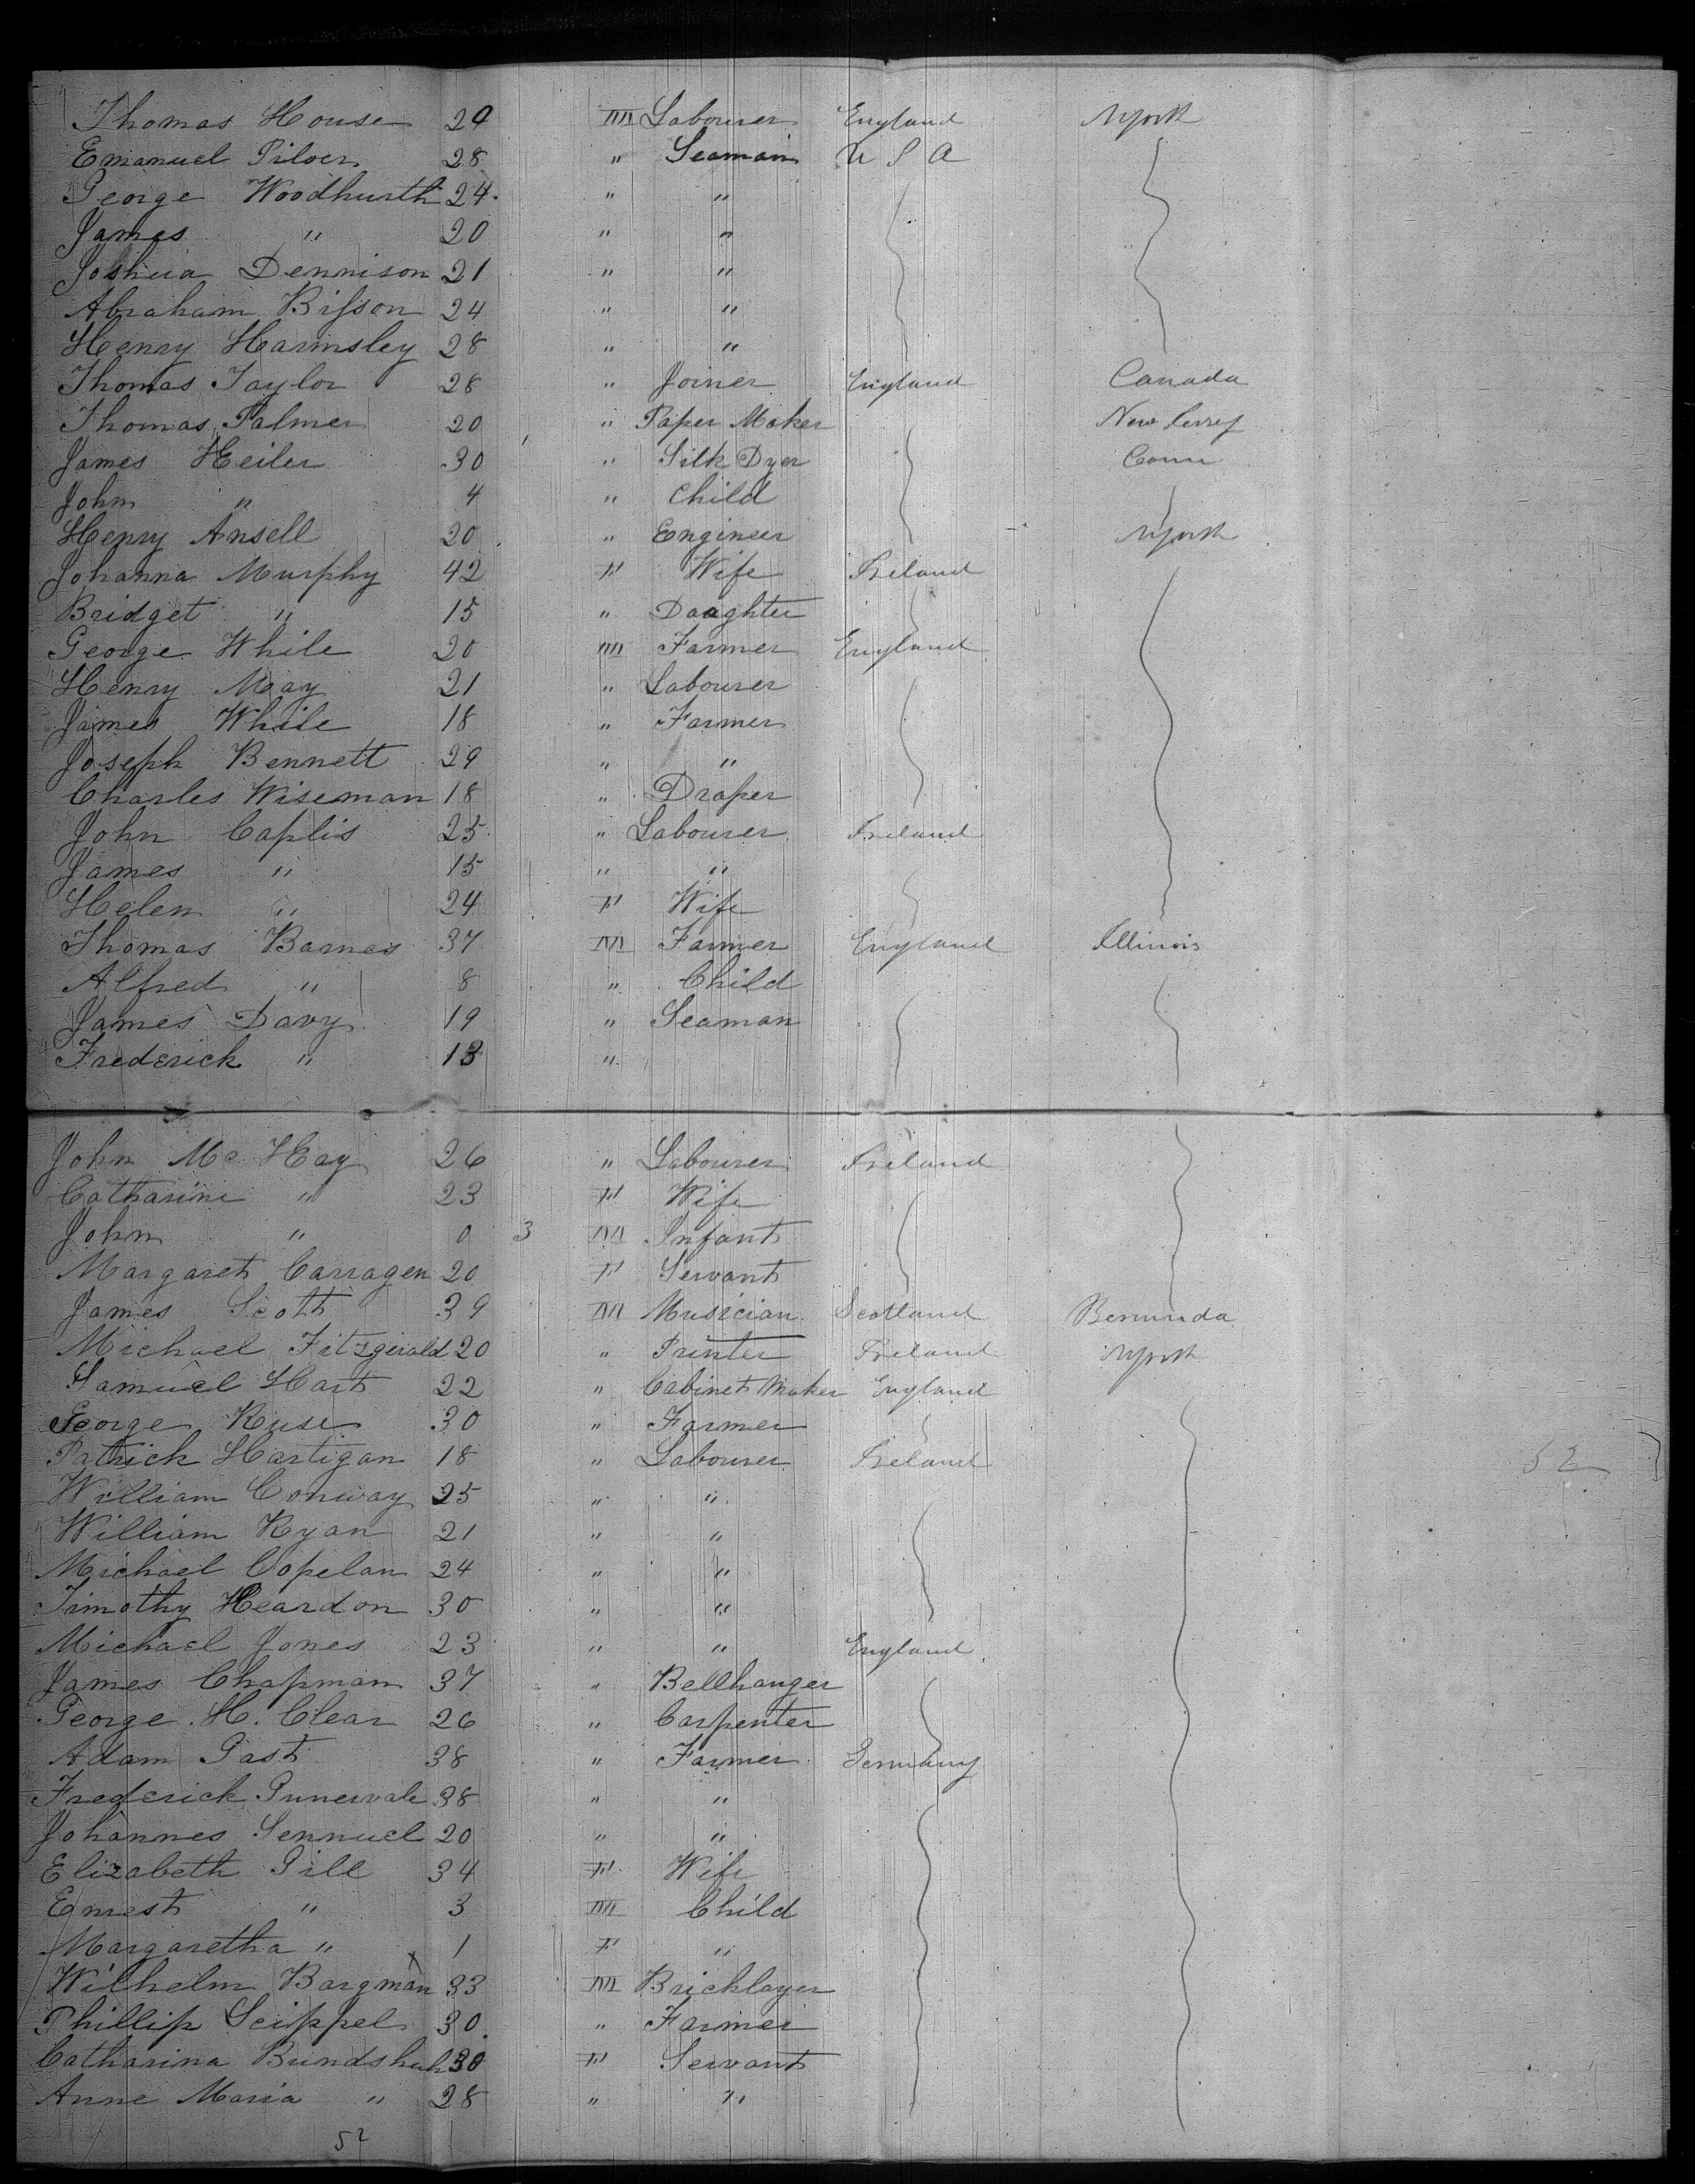 Thomas House 29 M Labourer England N York
Emanuel Pilver 28 " Seaman U S A
George Woodhurth 24 " "
James " 20 " "
Joshua Dennison 21 " "
Abraham Bifson 24 " "
Henry Harmsley 28 " "
Thomas Taylor 28 " Joiner England Canada
Thomas Palmer 20 " Paper Maker New Jersey
James Heiler 30 " Silk Dyer Conn
John " 4 " Child
Henry Ansell 20 " Engineer N York
Johanna Murphy 42 F Wife Ireland
Bridget " 15 " Daughter
George While 20 M Farmer England
Henry May 21 " Labourer
James While 18 " Farmer
Joseph Bennett 29 " "
Charles Wiseman 18 " Draper
John Caplis 25 " Labourer Ireland
James " 15 " "
Helen " 24 F Wife
Thomas Barnes 37 M Farmer England Illinois
Alfred " 8 " Child
James Davy 19 " Seaman
Frederick " 13 "
John Mc Hay 26 " Labourer Ireland
Catharine " 23 F Wife
John " 0 3 M Infant
Margaret Carragen 20 F Servant
James Scott 39 M Musician Scotland Bermuda
Michael Fitzgerald 20 " Printer Ireland N York
Samuel Hart 22 " Cabinet Maker England
George Ruse 30 " Farmer
Patrick Hartigan 18 " Labourer Ireland 52
William Conway 25 " "
William Ryan 21 " "
Michael Copelan 24 " "
Timothy Heardon 30 " "
Michael Jones 23 " " England
James Chapman 37 " Bellhanger
George H. Clear 26 " Carpenter
Adam Past 38 " Farmer Germany
Frederick Punervale 38 " "
Johannes Sennuel 20 " "
Elizabeth Pill 34 F Wife
Ernest " 3 M Child
Margaretha " 1 F "
Wilhelm Bargman 33 M Bricklayer
Phillip Scippel 30 " Farmer
Catharina Bundshuh 30 F Servant
Anne Maria " 28 " "
52